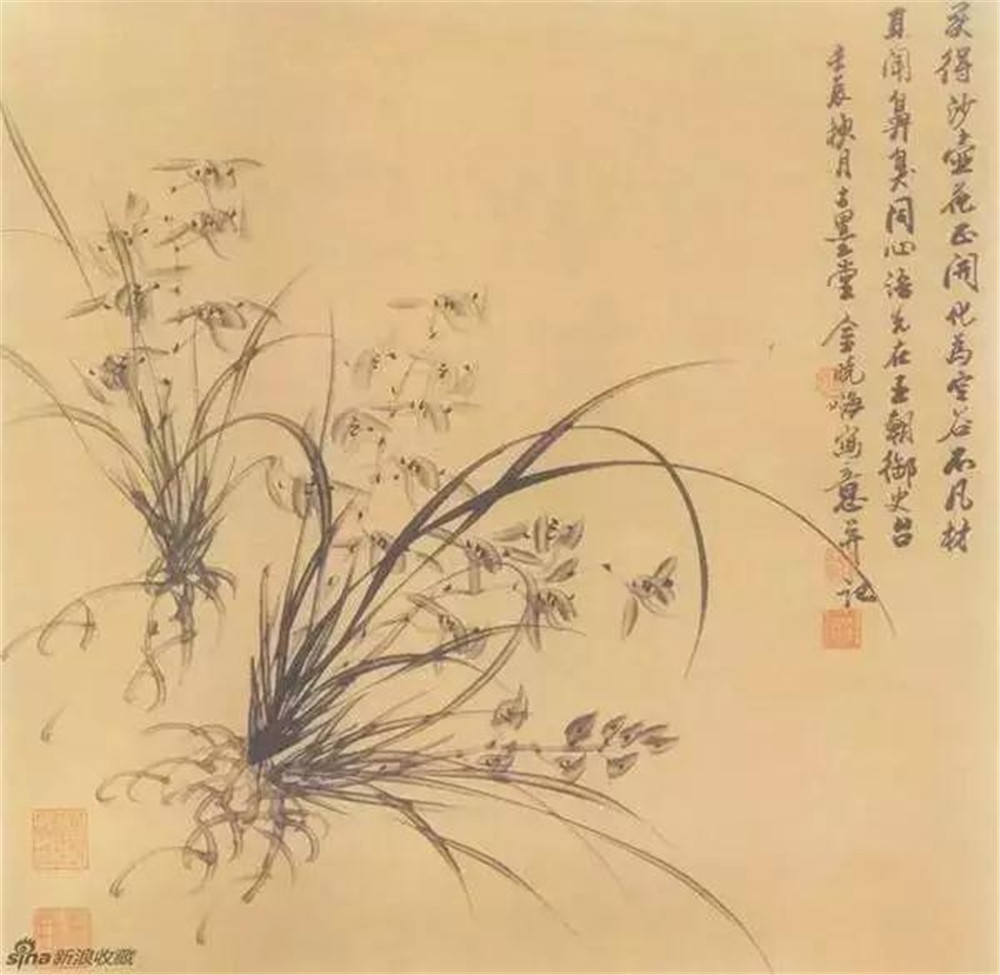 得沙壺花正開化為空谷不凡材
聞鼻臭同心語先在王朝御史台
壬辰月古墨堂金曉海寫意并記
sina新浪收藏